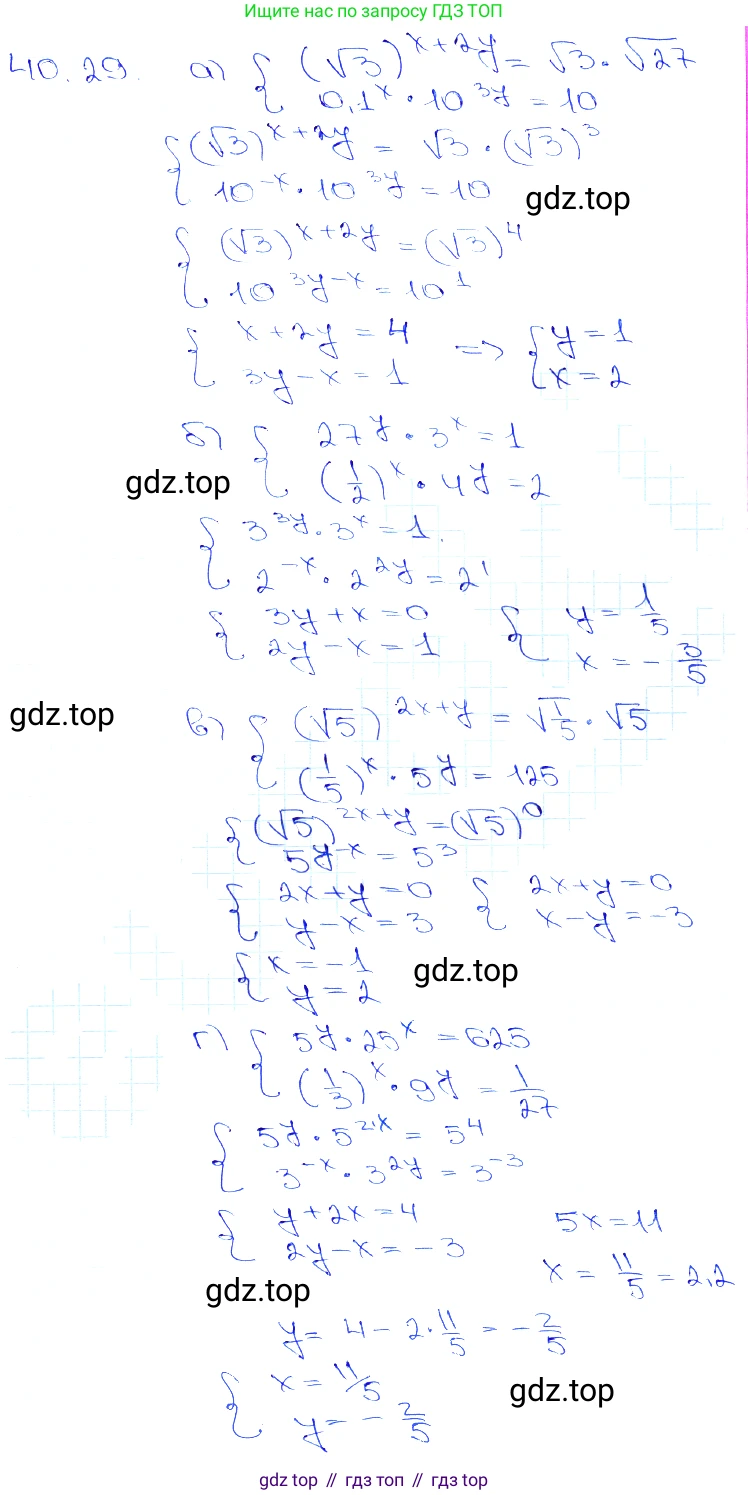 Ищите нас по запросу ГДЗ ТОП
40.29. а) { (√3)^(x+2y) = √3 · √27
0,1^x · 10^(3y) = 10
{ (√3)^(x+2y) = √3 · (√3)^3
10^(-x) · 10^(3y) = 10
gdz.top
{ (√3)^(x+2y) = (√3)^4
10^(3y-x) = 10^1
{ x+2y = 4
3y-x = 1
=> { y = 1
x = 2
б) { 27^y · 3^x = 1
(1/2)^x · 4^y = 2
gdz.top
{ 3^(3y) · 3^x = 1
2^(-x) · 2^(2y) = 2^1
{ 3y+x = 0
2y-x = 1
{ y = 1/5
x = -3/5
gdz.top
в) { (√5)^(2x+y) = √(1/5) · √5
(1/5)^x · 5^y = 125
{ (√5)^(2x+y) = (√5)^0
5^(y-x) = 5^3
{ 2x+y = 0
y-x = 3
{ 2x+y = 0
x-y = -3
{ x = -1
y = 2
gdz.top
г) { 5^y · 25^x = 625
(1/3)^x · 9^y = 1/27
{ 5^y · 5^(2x) = 5^4
3^(-x) · 3^(2y) = 3^(-3)
{ y+2x = 4
2y-x = -3
5x = 11
x = 11/5 = 2,2
gdz.top
y = 4 - 2 · 11/5 = -2/5
{ x = 11/5
y = -2/5
gdz.top
gdz top // гдз топ // gdz top